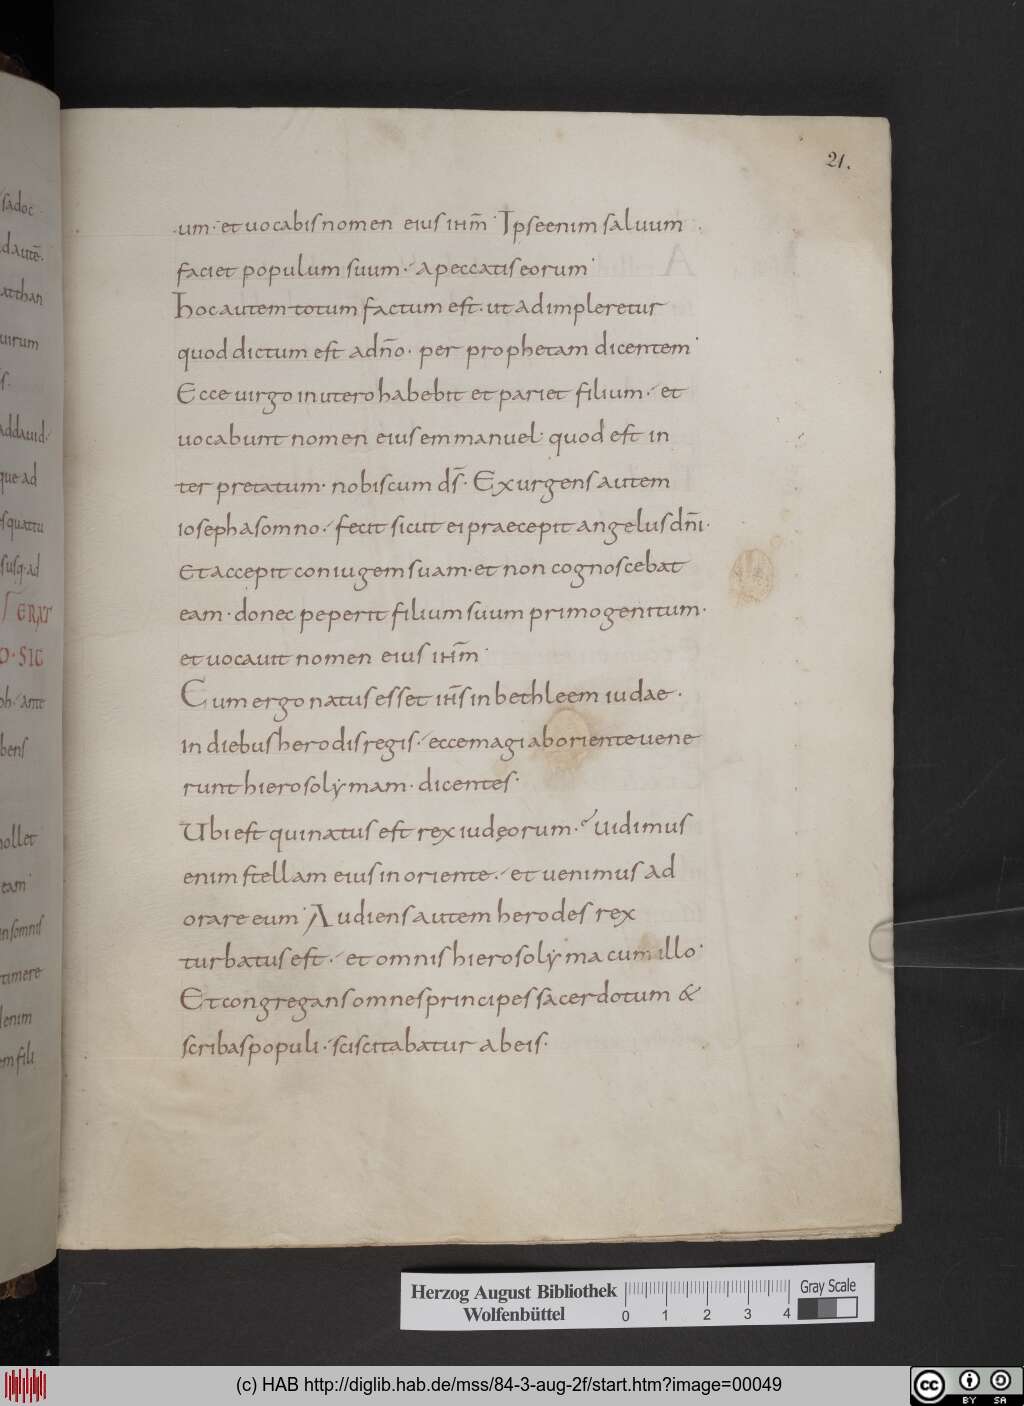 21.
um· et uocabis nomen eius ihm̄ Ipse enim saluum
faciet populum suum· a peccatis eorum·
hoc autem totum factum est· ut adimpleretur
quod dictum est a dn̄o· per prophetam dicentem·
Ecce uirgo in utero habebit et pariet filium· et
uocabunt nomen eius emmanuel· quod est in
ter pretatum· nobiscum ds̄· Exurgens autem
ioseph a somno· fecit sicut ei praecepit angelus dn̄i·
Et accepit coniugem suam· et non cognoscebat
eam· donec peperit filium suum primogenitum·
et uocauit nomen eius ihm̄·
Cum ergo natus esset ihs̄ in bethleem iudae·
In diebus herodis regis· ecce magi ab oriente uene
runt hierosolẏmam· dicentes·
Ubi est qui natus est rex iudęorum· Uidimus
enim stellam eius in oriente· et uenimus ad
orare eum· Audiens autem herodes rex
turbatus est· et omnis hierosolẏma cum illo·
Et congregans omnes principes sacerdotum &
scribas populi· sciscitabatur ab eis·
sadoc
dautē·
atthan
uirum
addauid·
que ad
quattu
susq· ad
ERAT
O· SIC
ante
bens
nollet
eam·
in somnis
timere
enim
em fili
Herzog August Bibliothek
Wolfenbüttel
0 1 2 3 4
Gray Scale
(c) HAB http://diglib.hab.de/mss/84-3-aug-2f/start.htm?image=00049
cc BY SA